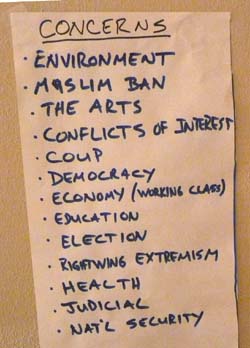 CONCERNS
· ENVIRONMENT
· MUSLIM BAN
· THE ARTS
· CONFLICTS OF INTEREST
· COUP
· DEMOCRACY
· ECONOMY (WORKING CLASS)
· EDUCATION
· ELECTION
· RIGHTWING EXTREMISM
· HEALTH
· JUDICIAL
· NAT'L SECURITY